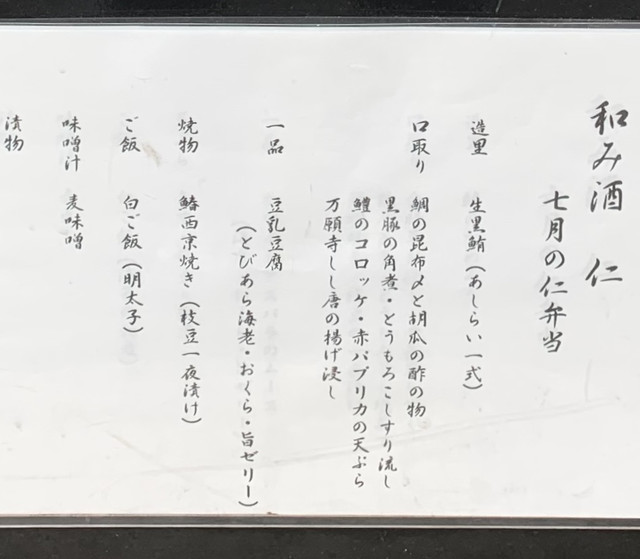 和み酒 仁
七月の仁弁当
造里 生黒鮪(あしらい一式)
口取り 鯛の昆布〆と胡瓜の酢の物
黒豚の角煮・とうもろこしすり流し
鱧のコロッケ・赤パプリカの天ぷら
万願寺しし唐の揚げ浸し
一品 豆乳豆腐
(とびあら海老・おくら・旨ゼリー)
焼物 鰆西京焼き(枝豆一夜漬け)
ご飯 白ご飯(明太子)
味噌汁 麦味噌
漬物